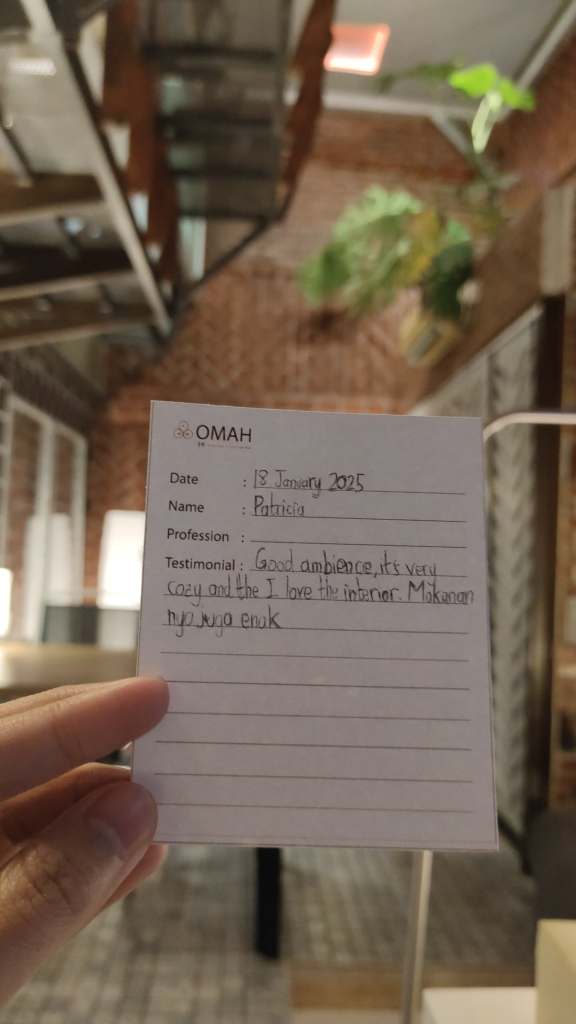 OMAH
Date : 18 January 2025
Name : Patricia
Profession :
Testimonial : Good ambience, it's very
cozy and the I love the interior. Makanan
nya juga enak